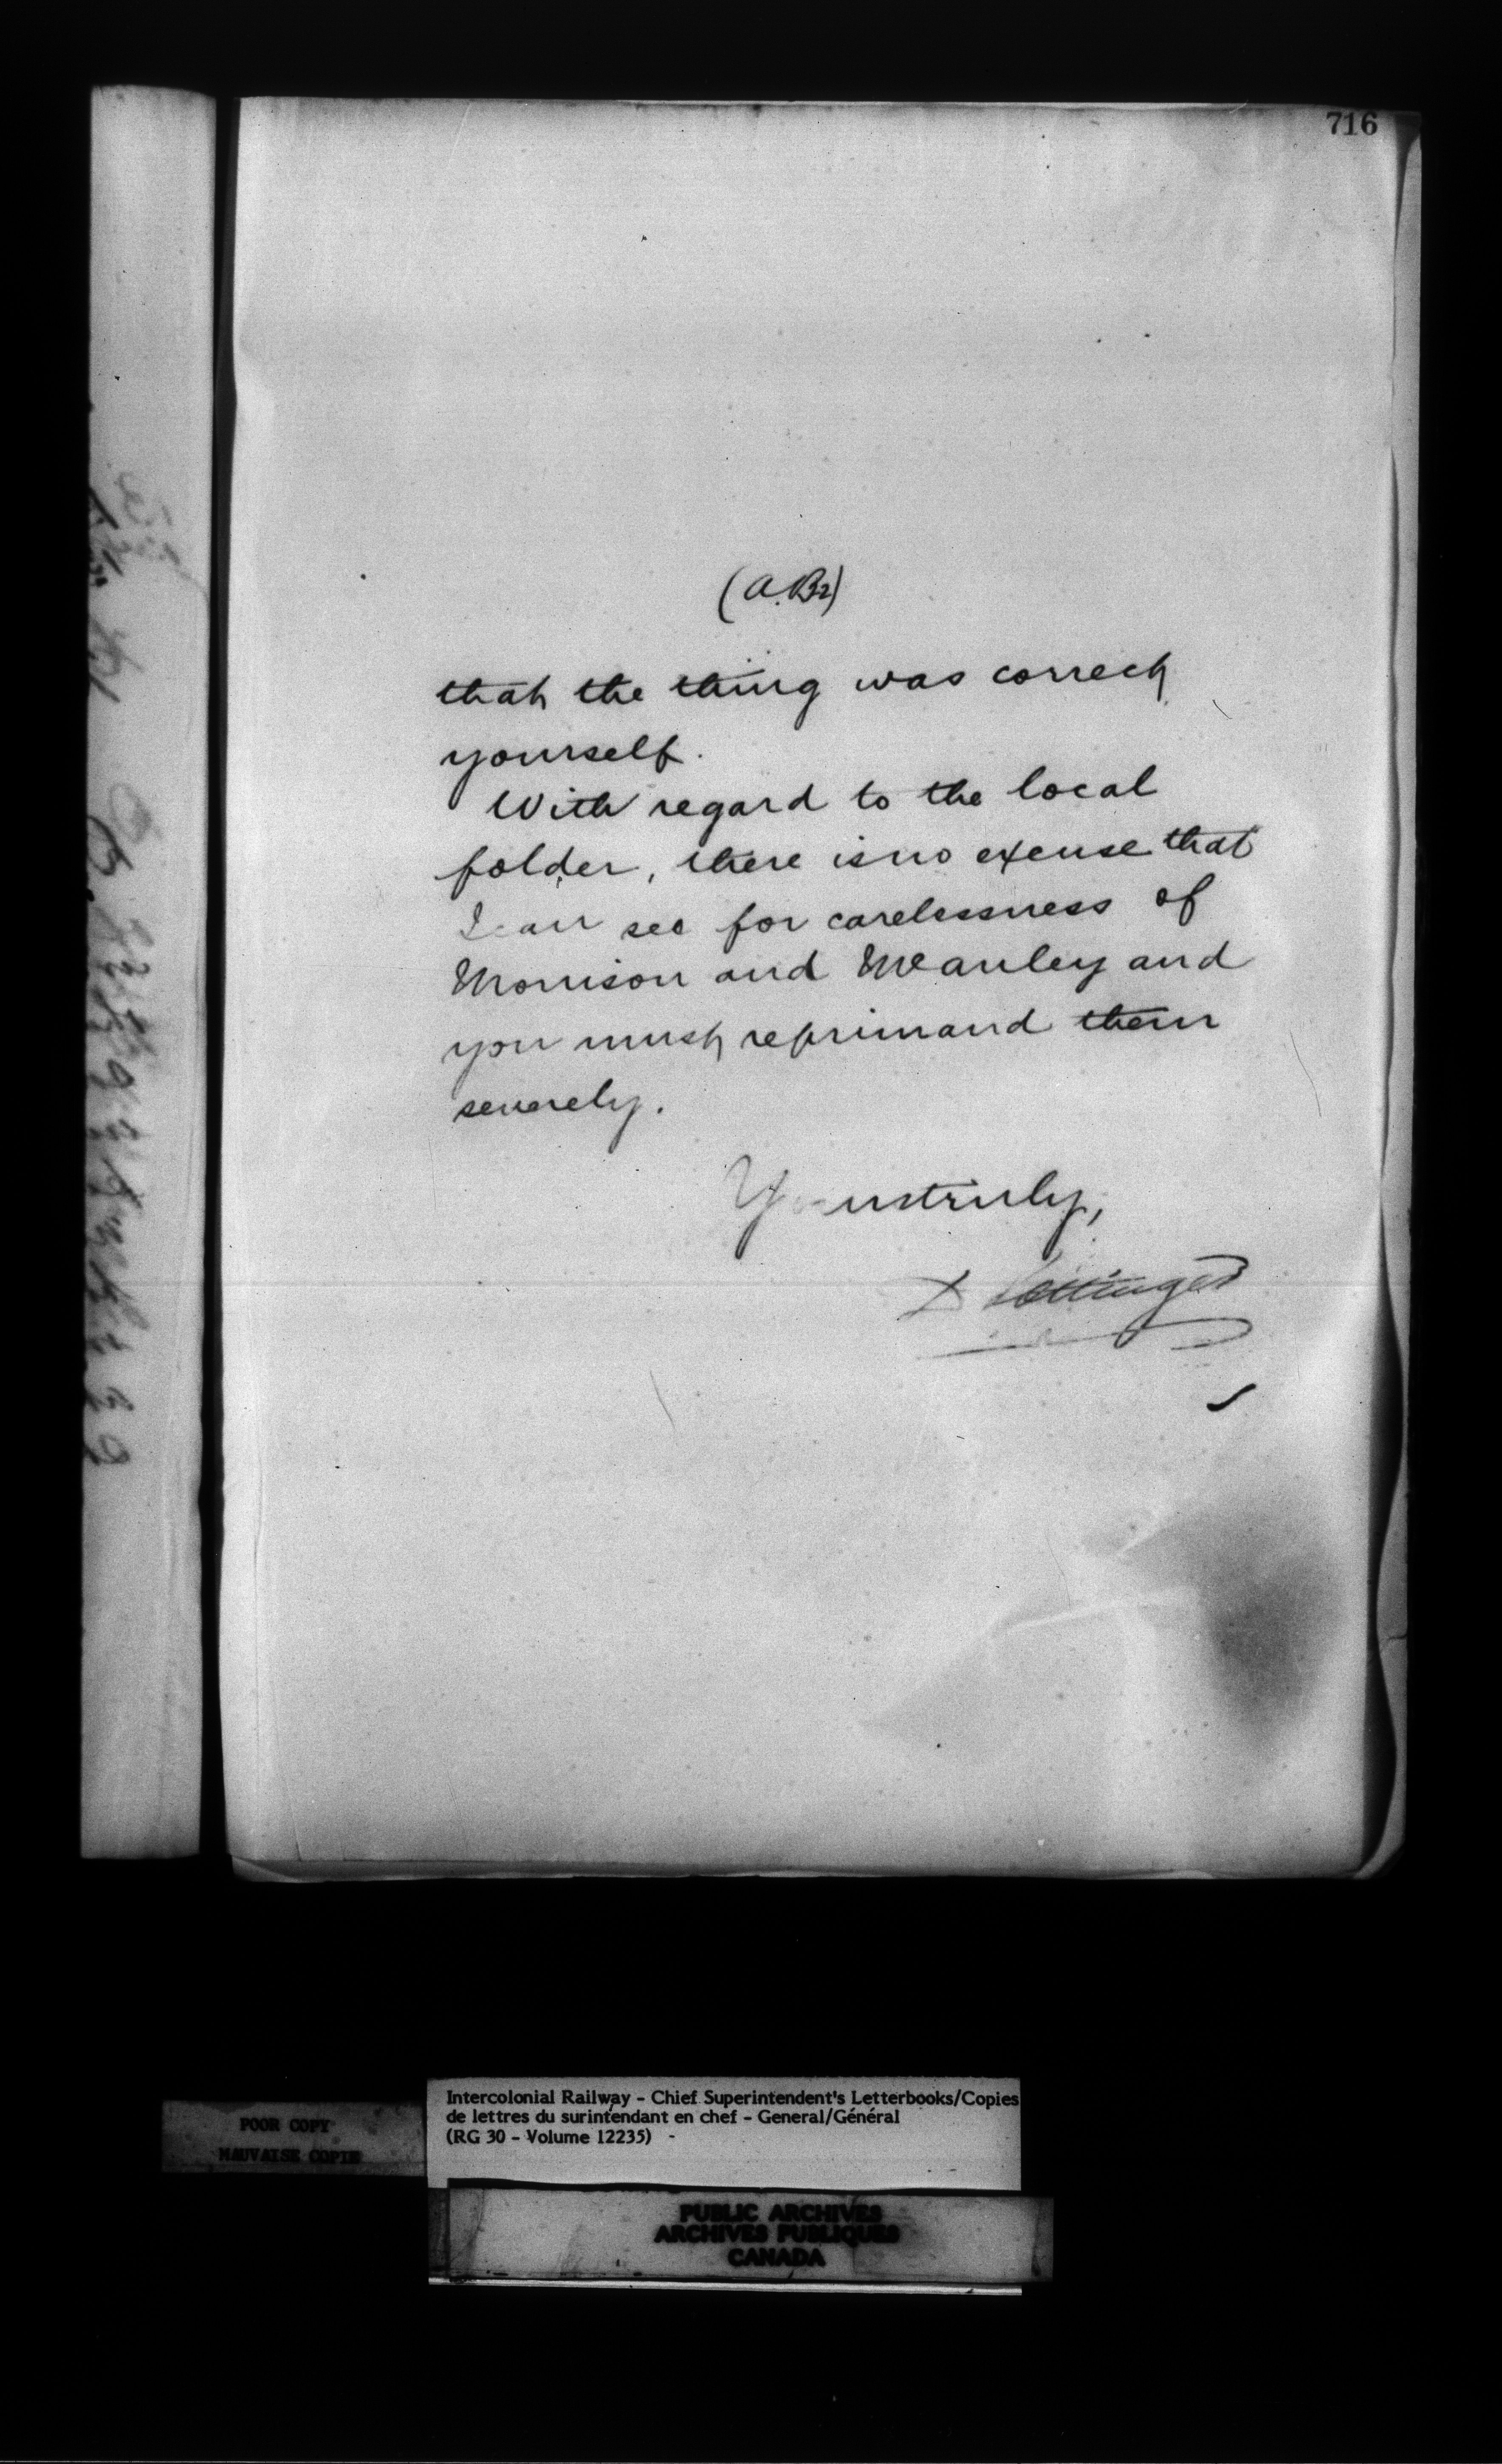 716
(A.B2)
that the thing was correct
yourself.
With regard to the local
folder, there is no excuse that
I can see for carelessness of
Morrison and McAnley and
you must reprimand them
severely.
Yours truly,
D Pottinger
POOR COPY
MAUVAISE COPIE
Intercolonial Railway - Chief Superintendent's Letterbooks/Copies
de lettres du surintendant en chef - General/Général
(RG 30 - Volume 12235) -
PUBLIC ARCHIVES
ARCHIVES PUBLIQUES
CANADA